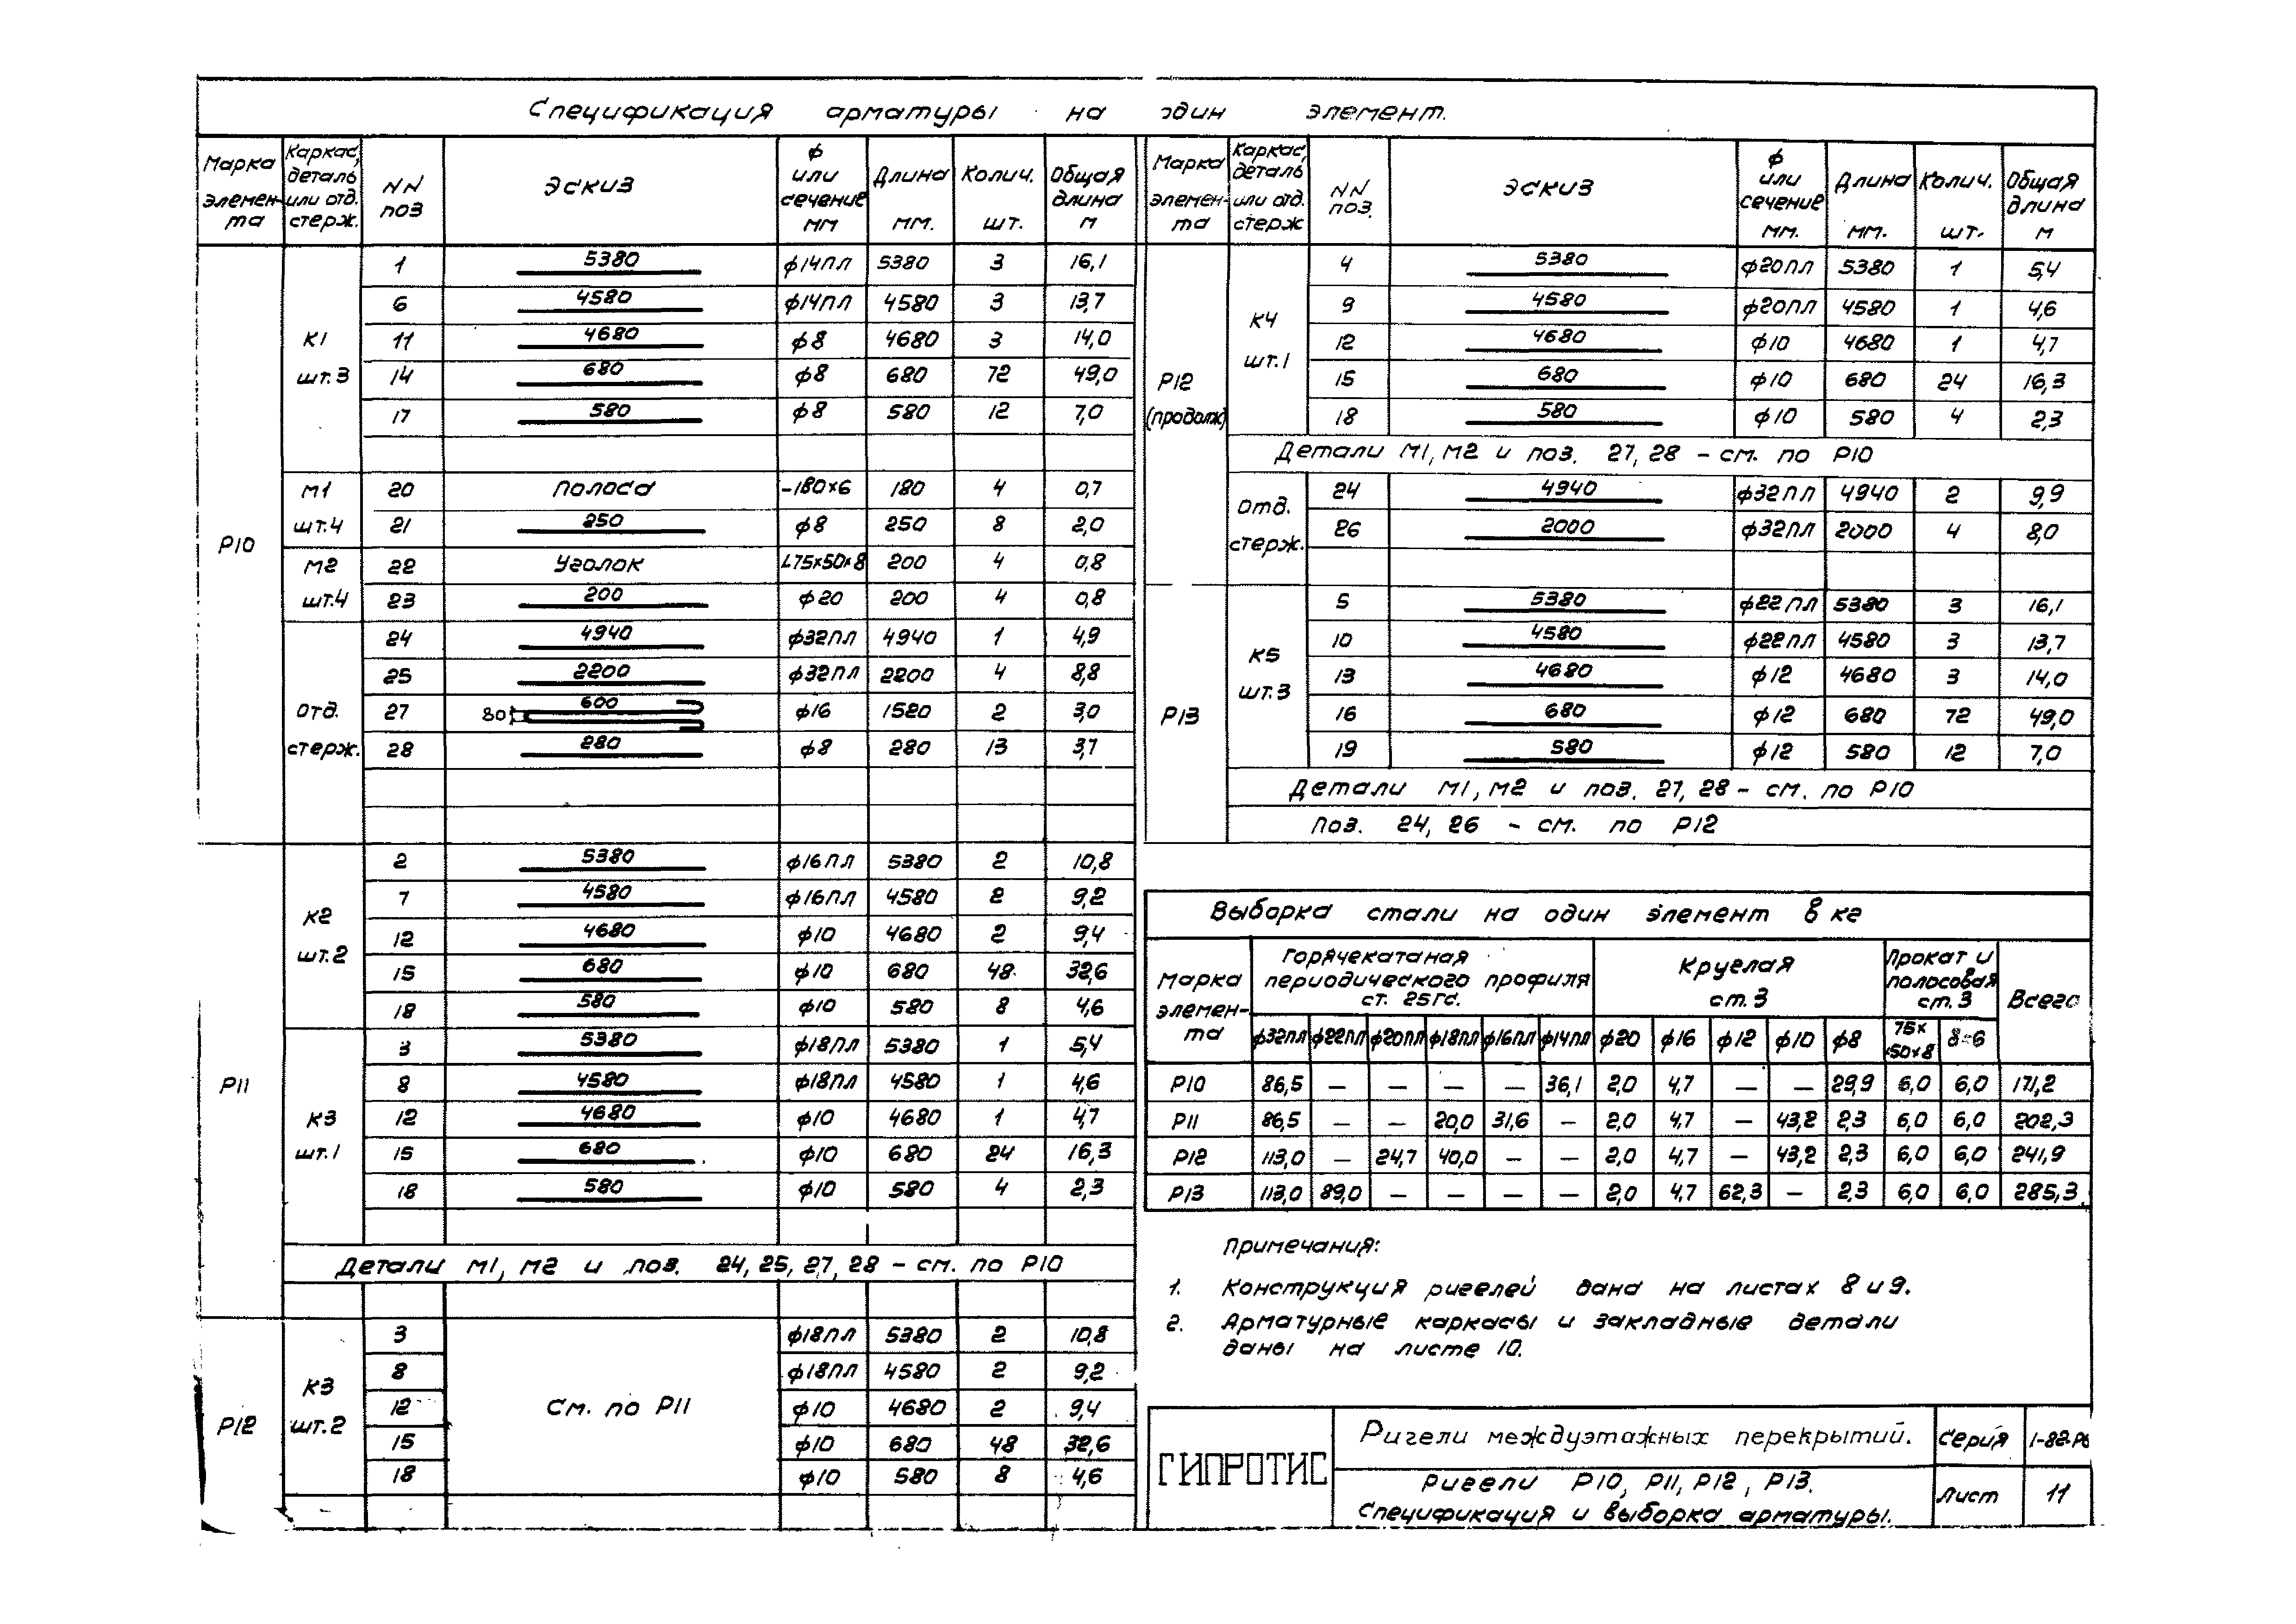 Спецификация арматуры на один элемент.
Марка элемен-та | Каркас, деталь или отд. стерж. | NN поз | Эскиз | ф или сечение мм | Длина мм. | Колич. шт. | Общая длина м
Р10
К1 шт.3
1 | 5380 | ф14пл | 5380 | 3 | 16,1
6 | 4580 | ф14пл | 4580 | 3 | 13,7
11 | 4680 | ф8 | 4680 | 3 | 14,0
14 | 680 | ф8 | 680 | 72 | 49,0
17 | 580 | ф8 | 580 | 12 | 7,0
М1 шт.4
20 | Полоса | -180×6 | 180 | 4 | 0,7
21 | 250 | ф8 | 250 | 8 | 2,0
М2 шт.4
22 | Уголок | L75×50×8 | 200 | 4 | 0,8
23 | 200 | ф20 | 200 | 4 | 0,8
отд. стерж.
24 | 4940 | ф32пл | 4940 | 1 | 4,9
25 | 2200 | ф32пл | 2200 | 4 | 8,8
27 | 80 600 | ф16 | 1520 | 2 | 3,0
28 | 280 | ф8 | 280 | 13 | 3,7
Р11
К2 шт.2
2 | 5380 | ф16пл | 5380 | 2 | 10,8
7 | 4580 | ф16пл | 4580 | 2 | 9,2
12 | 4680 | ф10 | 4680 | 2 | 9,4
15 | 680 | ф10 | 680 | 48 | 32,6
18 | 580 | ф10 | 580 | 8 | 4,6
К3 шт.1
3 | 5380 | ф18пл | 5380 | 1 | 5,4
8 | 4580 | ф18пл | 4580 | 1 | 4,6
12 | 4680 | ф10 | 4680 | 1 | 4,7
15 | 680 | ф10 | 680 | 24 | 16,3
18 | 580 | ф10 | 580 | 4 | 2,3
Детали М1, М2 и поз. 24, 25, 27, 28 - см. по Р10
Р12
К3 шт.2
См. по Р11
3 | ф18пл | 5380 | 2 | 10,8
8 | ф18пл | 4580 | 2 | 9,2
12 | ф10 | 4680 | 2 | 9,4
15 | ф10 | 680 | 48 | 32,6
18 | ф10 | 580 | 8 | 4,6
Марка элемен-та | Каркас, деталь или отд. стерж | NN поз. | Эскиз | ф или сечение мм. | Длина мм. | Колич. шт. | Общая длина м
Р12 (продолж)
К4 шт.1
4 | 5380 | ф20пл | 5380 | 1 | 5,4
9 | 4580 | ф20пл | 4580 | 1 | 4,6
12 | 4680 | ф10 | 4680 | 1 | 4,7
15 | 680 | ф10 | 680 | 24 | 16,3
18 | 580 | ф10 | 580 | 4 | 2,3
Детали М1, М2 и поз. 27, 28 - см. по Р10
Отд. стерж.
24 | 4940 | ф32пл | 4940 | 2 | 9,9
26 | 2000 | ф32пл | 2000 | 4 | 8,0
Р13
К5 шт.3
5 | 5380 | ф22пл | 5380 | 3 | 16,1
10 | 4580 | ф22пл | 4580 | 3 | 13,7
13 | 4680 | ф12 | 4680 | 3 | 14,0
16 | 680 | ф12 | 680 | 72 | 49,0
19 | 580 | ф12 | 580 | 12 | 7,0
Детали М1, М2 и поз. 27, 28 - см. по Р10
Поз. 24, 26 - см. по Р12
Выборка стали на один элемент в кг
Марка элемен-та | Горячекатаная периодического профиля ст. 25ГС. | Круглая ст. 3 | Прокат и полосовая ст. 3 | Всего
ф32пл | ф22пл | ф20пл | ф18пл | ф16пл | ф14пл | ф20 | ф16 | ф12 | ф10 | ф8 | 75×50×8 | δ=6
Р10 | 86,5 | — | — | — | — | 36,1 | 2,0 | 4,7 | — | — | 29,9 | 6,0 | 6,0 | 171,2
Р11 | 86,5 | — | — | 20,0 | 31,6 | — | 2,0 | 4,7 | — | 43,2 | 2,3 | 6,0 | 6,0 | 202,3
Р12 | 113,0 | — | 24,7 | 40,0 | — | — | 2,0 | 4,7 | — | 43,2 | 2,3 | 6,0 | 6,0 | 241,9
Р13 | 113,0 | 89,0 | — | — | — | — | 2,0 | 4,7 | 62,3 | — | 2,3 | 6,0 | 6,0 | 285,3
Примечания:
1. Конструкция ригелей дана на листах 8 и 9.
2. Арматурные каркасы и закладные детали
даны на листе 10.
ГИПРОТИС
Ригели междуэтажных перекрытий.
Серия
Ригели Р10, Р11, Р12, Р13.
Спецификация и выборка арматуры.
Лист 11